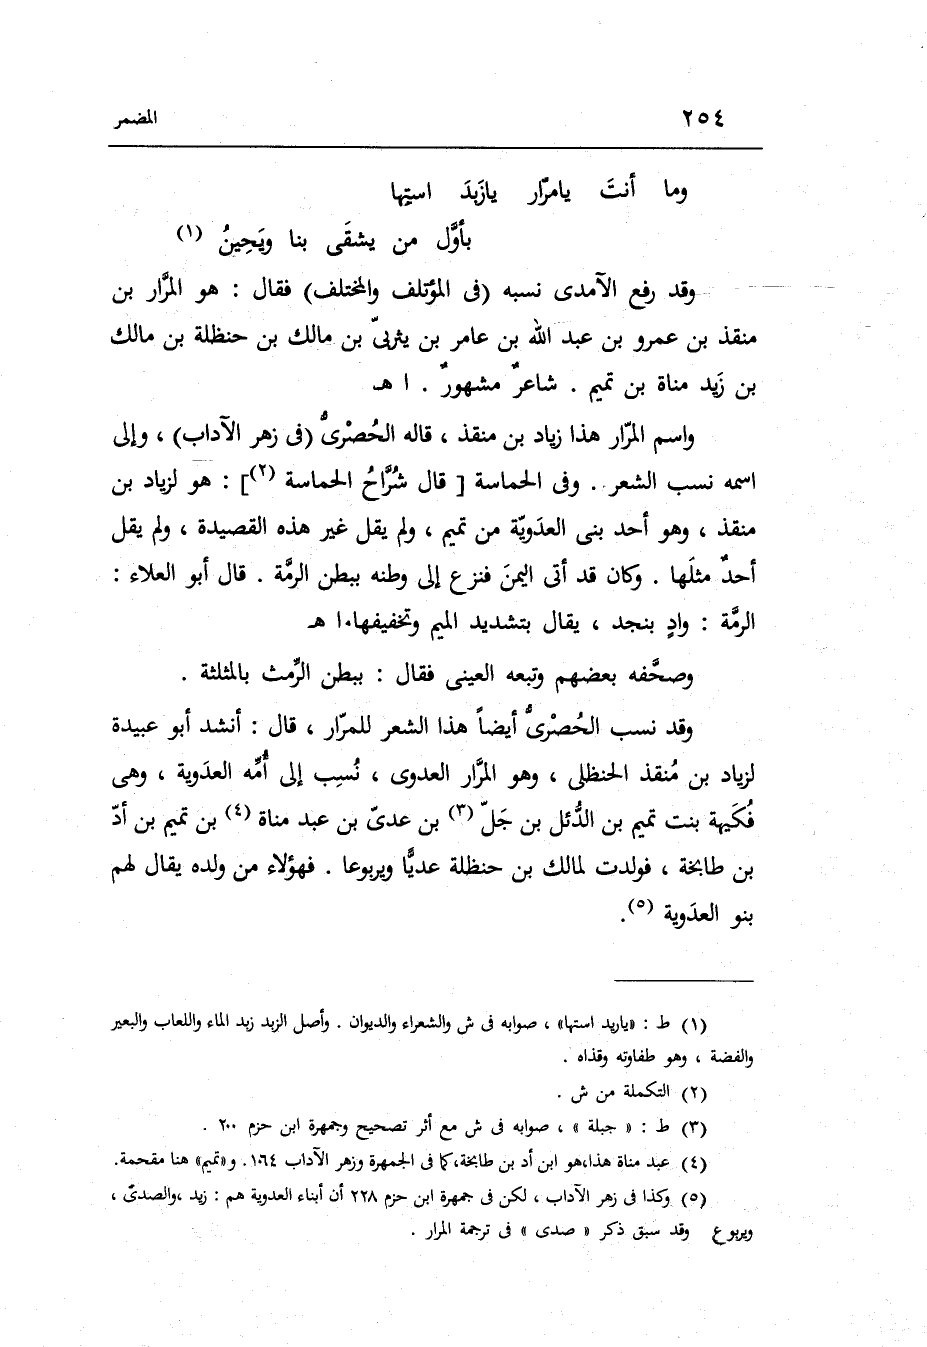 ٢٥٤ المضمر
وما أنتَ يامرّار يازَبدَ استِها
بأوَّل من يشقَى بنا ويَحِينُ (١)
وقد رفع الآمدى نسبه (فى المؤتلف والمختلف) فقال : هو المرَّار بن
منقذ بن عمرو بن عبد الله بن عامر بن يثربىّ بن مالك بن حنظلة بن مالك
بن زَيد مناة بن تميم . شاعرٌ مشهورٌ . ا هـ
واسم المرّار هذا زياد بن منقذ ، قاله الحُصْرىُّ (فى زهر الآداب) ، وإلى
اسمه نسب الشعر . وفى الحماسة [ قال شُرَّاحُ الحماسة (٢)] : هو لزياد بن
منقذ ، وهو أحد بنى العدَويّة من تميم ، ولم يقل غير هذه القصيدة ، ولم يقل
أحدٌ مثلَها . وكان قد أتى اليمنَ فنزع إلى وطنه ببطن الرمَّة . قال أبو العلاء :
الرمَّة : وادٍ بنجد ، يقال بتشديد الميم وتخفيفها٠ا هـ
وصحَّفه بعضهم وتبعه العينى فقال : ببطن الرِّمث بالمثلثة .
وقد نسب الحُصْرىُّ أيضاً هذا الشعر للمرّار ، قال : أنشد أبو عبيدة
لزياد بن مُنقذ الحنظلى ، وهو المرَّار العدوى ، نُسِب إلى أُمِّه العدَوية ، وهى
فُكَيهة بنت تميم بن الدُّئل بن جَلّ (٣) بن عدىّ بن عبد مناة (٤) بن تميم بن أدّ
بن طابخة ، فولدت لمالك بن حنظلة عديًّا ويربوعا . فهؤلاء من ولده يقال لهم
بنو العدَوية (٥).
(١) ط : «ياربد استها» ، صوابه فى ش والشعراء والديوان . وأصل الزبد زبد الماء واللعاب والبعير
والفضة ، وهو طفاوته وقذاه .
(٢) التكملة من ش .
(٣) ط : « جبلة » ، صوابه فى ش مع أثر تصحيح وجمهرة ابن حزم ٢٠٠ .
(٤) عبد مناة هذا،هو ابن أد بن طابخة،كما فى الجمهرة وزهر الآداب ١٠٦٤. و«تميم» هنا مقحمة.
(٥) وكذا فى زهر الآداب ، لكن فى جمهرة ابن حزم ٢٢٨ أن أبناء العدوية هم : زيد ،والصدىّ ،
ويربوع وقد سبق ذكر « صدى » فى ترجمة المرار .